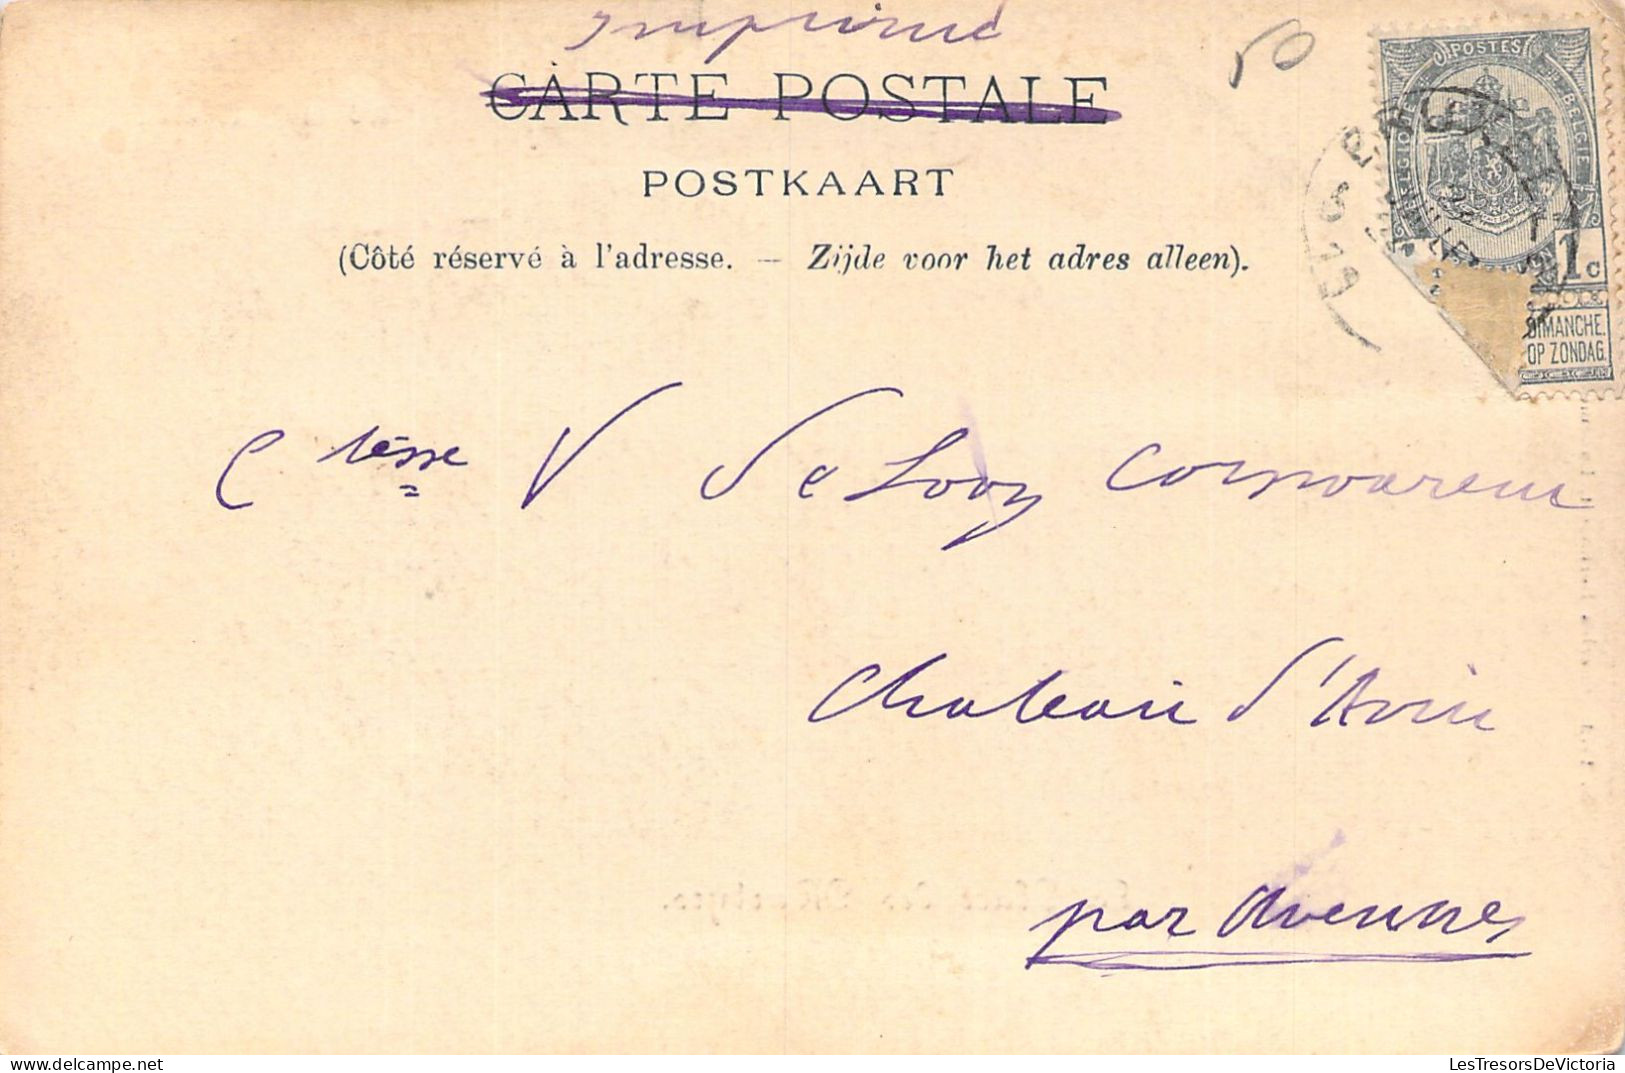 Imprimé
50
CARTE POSTALE
POSTKAART
(Côté réservé à l'adresse. — Zijde voor het adres alleen).
POSTES
BELGIQUE
BELGIE
1c
DIMANCHE.
OP ZONDAG.
Ctesse V de Looz Corswarem
Chateau d'Avin
par Avennes
LesTresorsDeVictoria